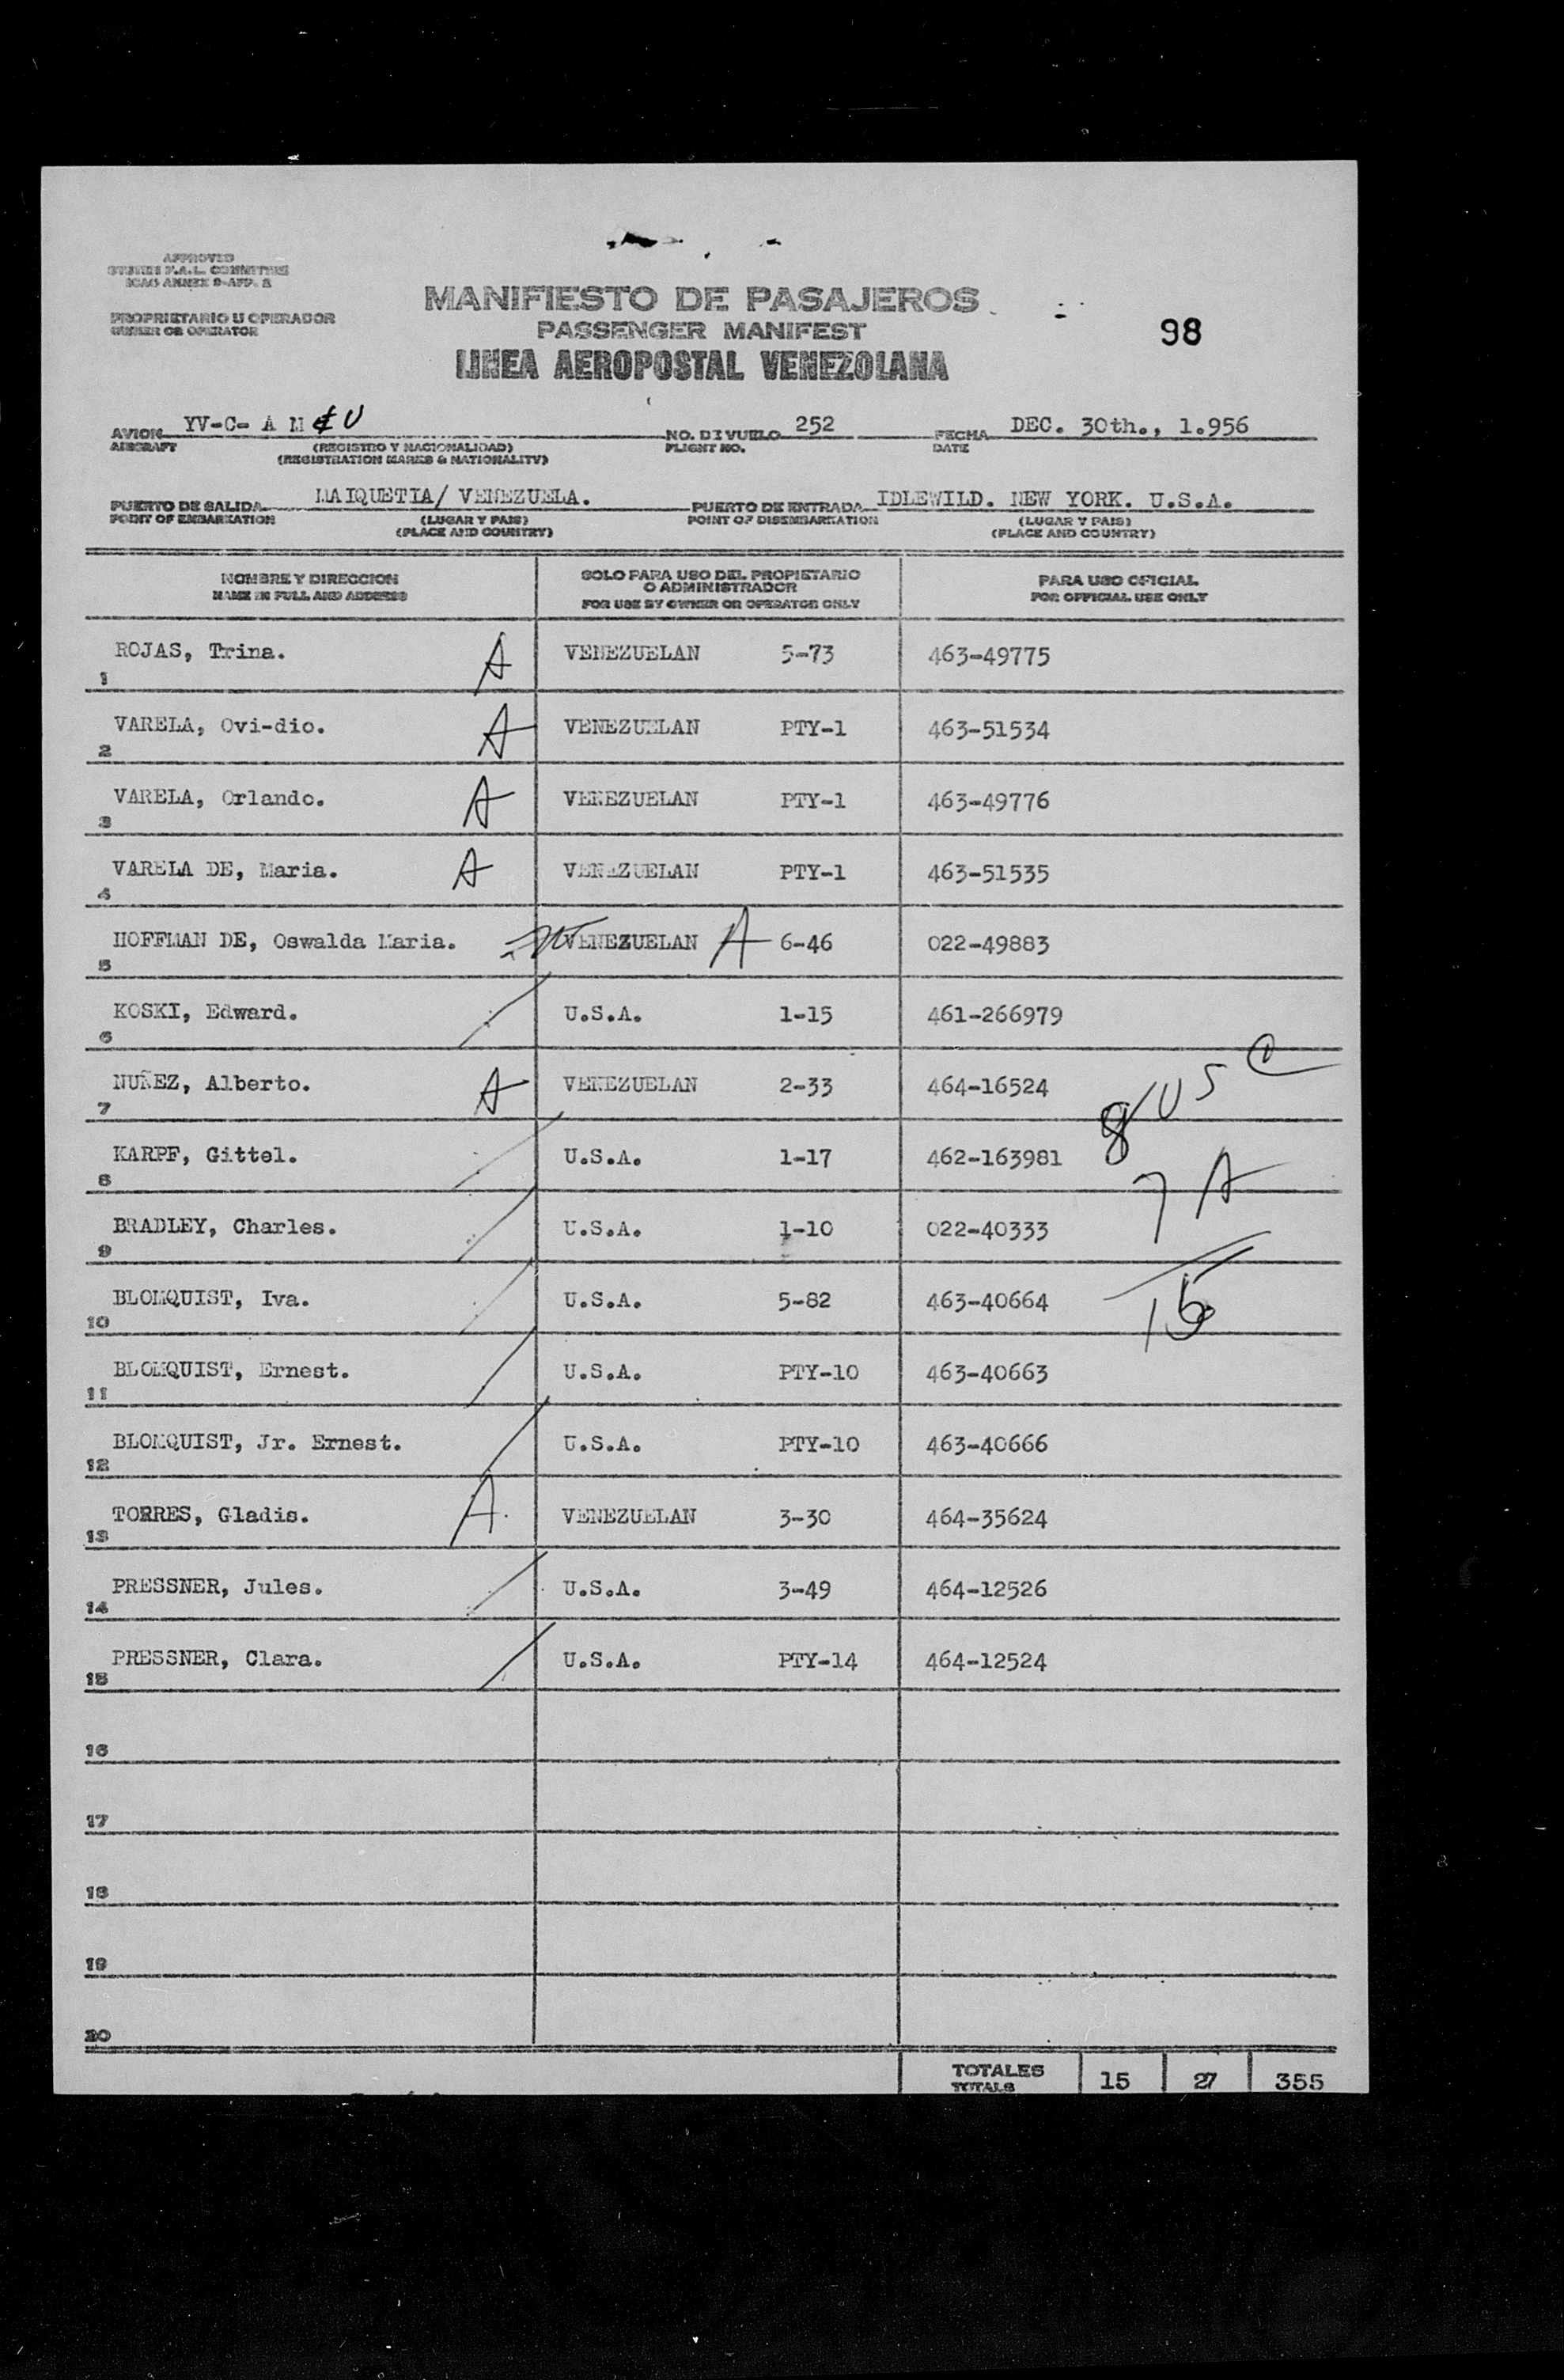 APPROVED
ICAO ANNEX 9-APP. 2
MANIFIESTO DE PASAJEROS
PROPRIETARIO U OPERADOR
OWNER OR OPERATOR
PASSENGER MANIFEST
98
LINEA AEROPOSTAL VENEZOLANA
AVION YV-C- A M U NO. DE VUELO 252 FECHA DEC. 30th., 1.956
AIRCRAFT (REGISTRO Y NACIONALIDAD) FLIGHT NO. DATE
(REGISTRATION MARKS & NATIONALITY)
PUERTO DE SALIDA MAIQUETIA/ VENEZUELA. PUERTO DE ENTRADA IDLEWILD. NEW YORK. U.S.A.
POINT OF EMBARKATION (LUGAR Y PAIS) POINT OF DISEMBARKATION (LUGAR Y PAIS)
(PLACE AND COUNTRY) (PLACE AND COUNTRY)
NOMBRE Y DIRECCION SOLO PARA USO DEL PROPIETARIO PARA USO OFICIAL
O ADMINISTRADOR
NAME IN FULL AND ADDRESS FOR USE BY OWNER OR OPERATOR ONLY FOR OFFICIAL USE ONLY
ROJAS, Trina. A VENEZUELAN 5-73 463-49775
1
VARELA, Ovi-dio. A VENEZUELAN PTY-1 463-51534
2
VARELA, Orlando. A VENEZUELAN PTY-1 463-49776
3
VARELA DE, Maria. A VENEZUELAN PTY-1 463-51535
4
HOFFMAN DE, Oswalda Maria. VENEZUELAN A 6-46 022-49883
5
KOSKI, Edward. U.S.A. 1-15 461-266979
6
NUÑEZ, Alberto. A VENEZUELAN 2-33 464-16524 8 US C
7
KARPF, Gittel. U.S.A. 1-17 462-163981
8
7 A
BRADLEY, Charles. U.S.A. 1-10 022-40333
9
BLOMQUIST, Iva. U.S.A. 5-82 463-40664 15
10
BLOMQUIST, Ernest. U.S.A. PTY-10 463-40663
11
BLOMQUIST, Jr. Ernest. U.S.A. PTY-10 463-40666
12
TORRES, Gladis. A. VENEZUELAN 3-30 464-35624
13
PRESSNER, Jules. U.S.A. 3-49 464-12526
14
PRESSNER, Clara. U.S.A. PTY-14 464-12524
15
16
17
18
19
20
TOTALES 15 27 355
TOTALS